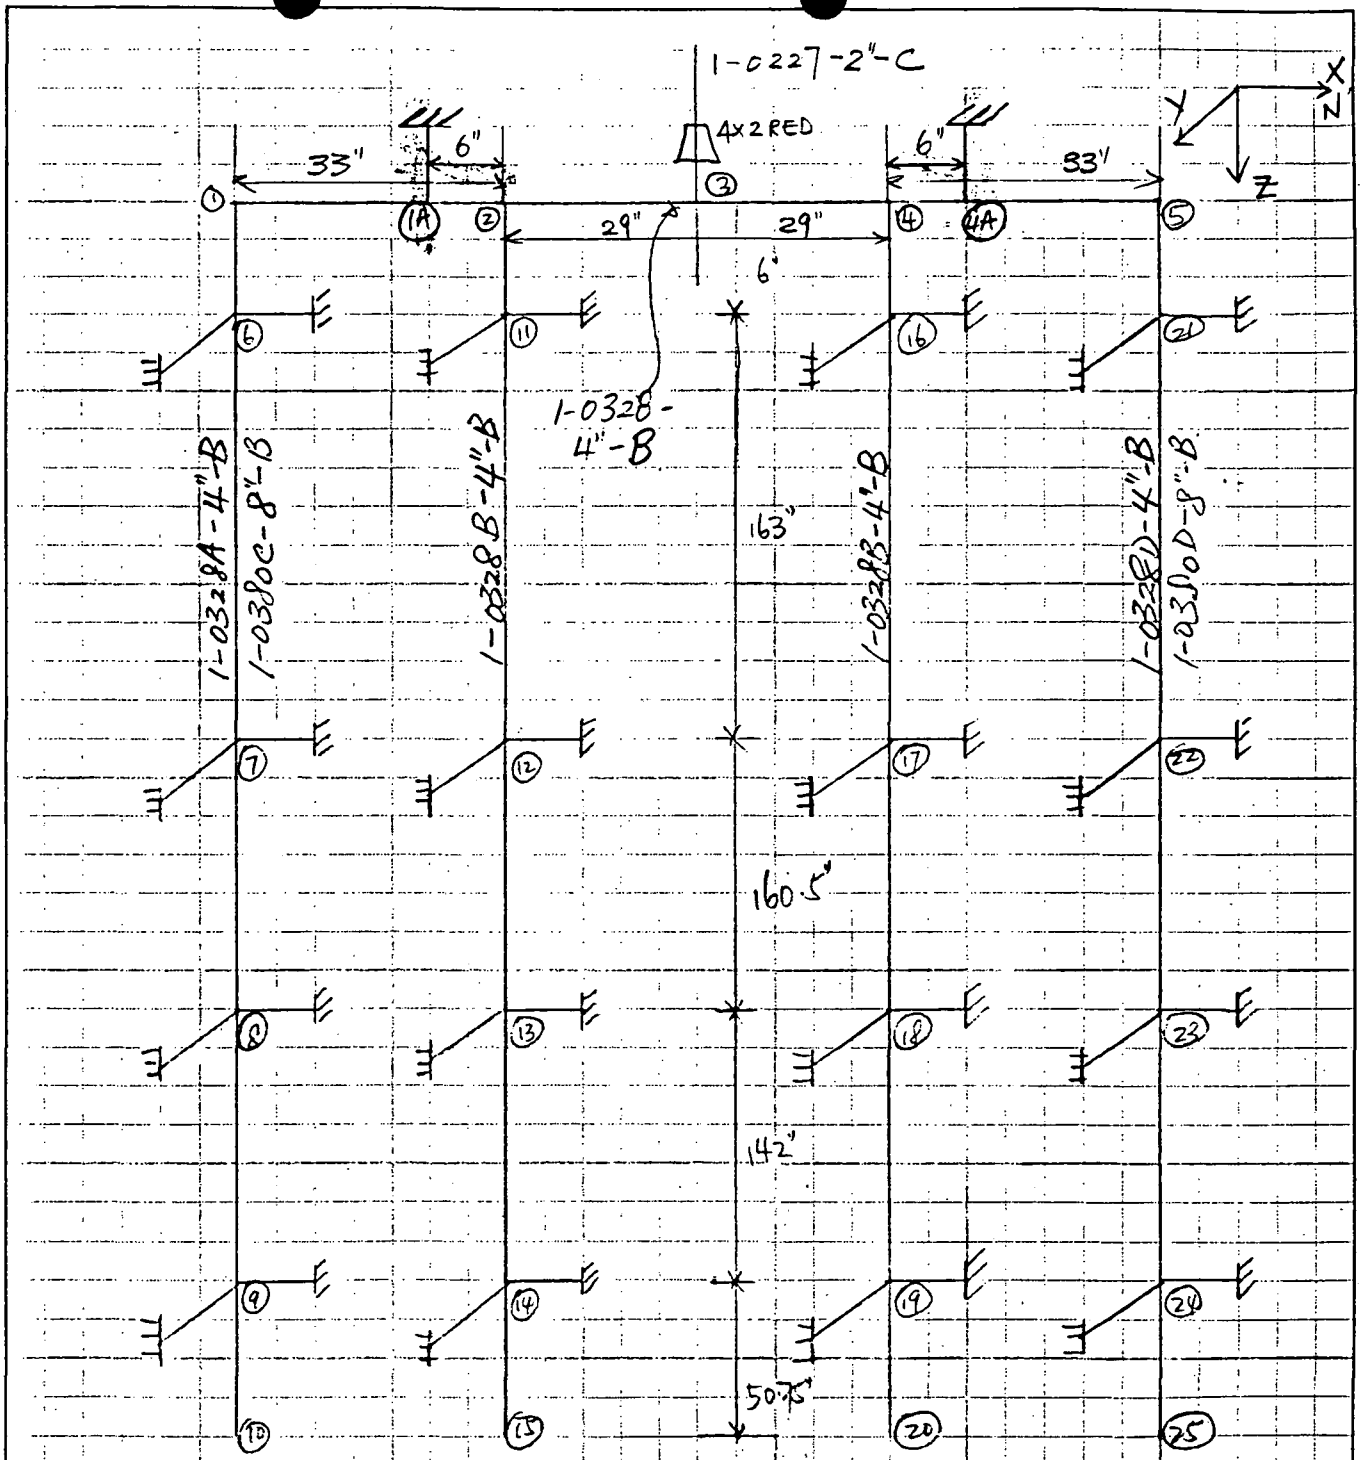 1-0227-2"-C
X
N
Y
Z
4X2 RED
33"
6"
6"
33"
1
1A
2
3
4
4A
5
29"
29"
6"
6
11
16
21
1-0328-
4"-B
1-0328A-4"-B
1-0380C-8"-B
1-0328B-4"-B
163"
1-0328B-4"-B
1-0328D-4"-B
1-0380D-8"-B
7
12
17
22
160.5"
8
13
18
23
142"
9
14
19
24
50.75"
10
15
20
25